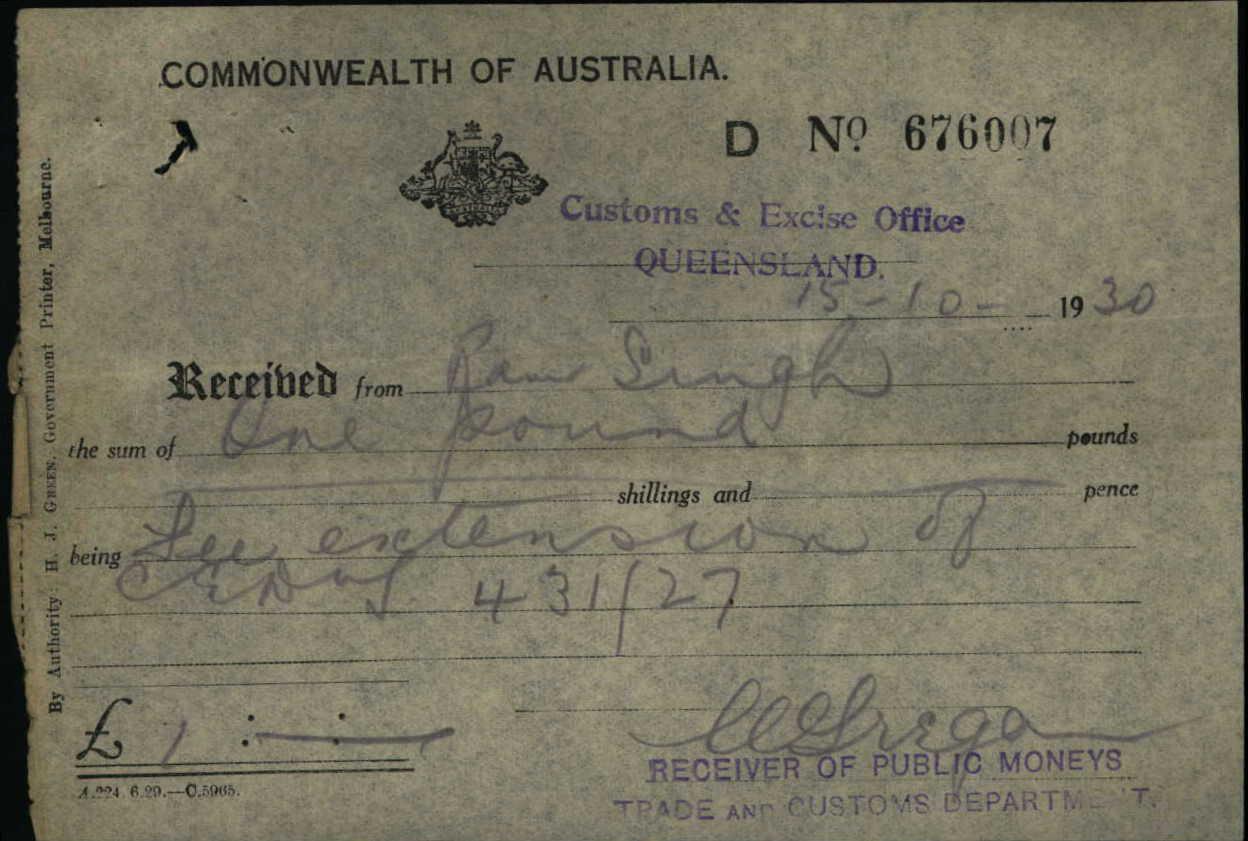 COMMONWEALTH OF AUSTRALIA.
D No 676007
Customs & Excise Office
QUEENSLAND.
15-10- 1930
Received from Ram Singh
the sum of One pound pounds
shillings and pence
being Fee extension of
CEDT 431/27
£ 1 : :
RECEIVER OF PUBLIC MONEYS
TRADE AND CUSTOMS DEPARTMENT.
A.224. 6.29.—C.5965.
By Authority H. J. GREEN, Government Printer, Melbourne.